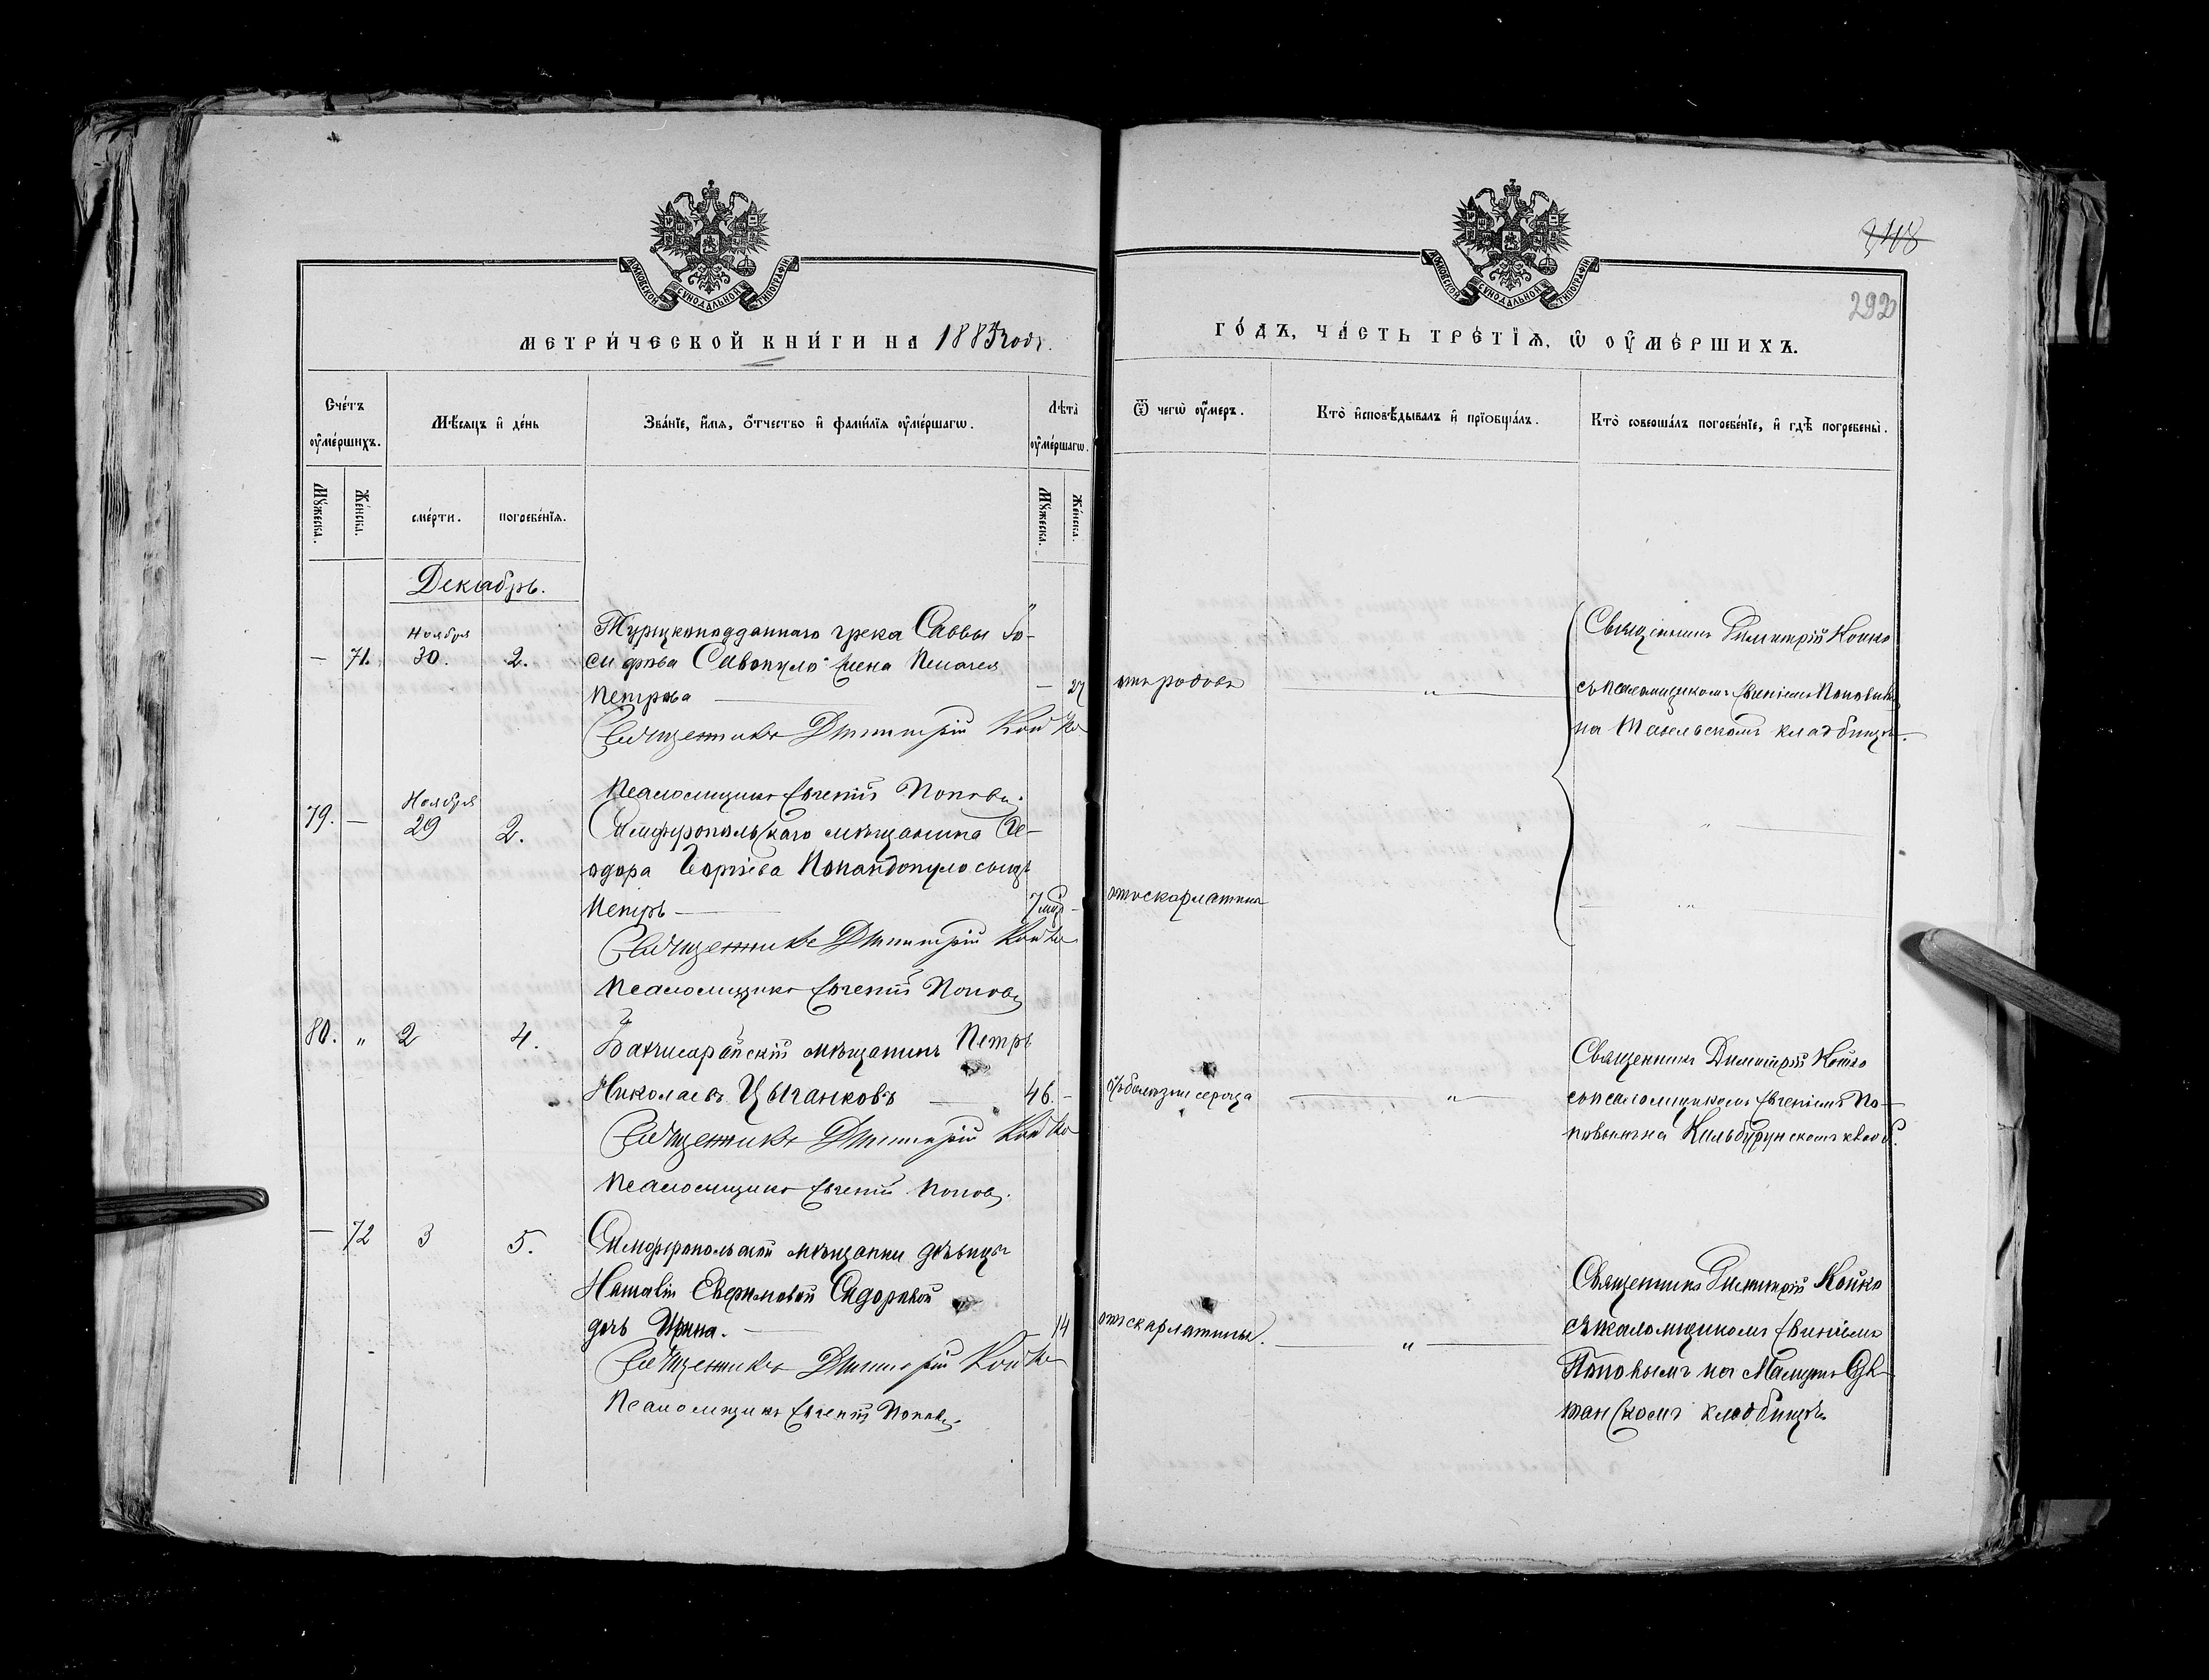 МОСКОВСКОЙ СѴНОДАЛЬНОЙ ТИПОГРАФІИ
МЕТРИ́ЧЕСКОЙ КНИ́ГИ НА 1883 годъ.
Сче́тъ ᲂу҆ме́ршихъ.
Мѣ́сяцъ и҆ де́нь
Зва́нїе, и҆́мѧ, ѻ҆́тчество и҆ фами́лїѧ ᲂу҆ме́ршагѡ.
Лѣ́та ᲂу҆ме́ршагѡ.
Мꙋ́жеска.
Же́нска.
сме́рти.
погребе́нїѧ.
Мꙋ́жеска.
Же́нска.
Декабрь.
— 71. Ноября 30. 2.
Турецкоподданнаго грека Саввы Іо-
сифова Савопуло жена Пелагея
Петрова — 27
Священникъ Димитрій Койко
Псаломщикъ Евгеній Поповъ.
79. — Ноября 29 2.
Симферопольскаго мѣщанина Ѳе-
одора Георгіева Попандопуло сынъ
Петръ — 7 мѣс. —
Священникъ Димитрій Койко
Псаломщикъ Евгеній Поповъ
80. " 2 4.
Бахчисарайскій мѣщанинъ Петръ
Николаевъ Цыганковъ — 46. —
Священникъ Димитрій Койко
Псаломщикъ Евгеній Поповъ.
— 72 3 5.
Симферопольской мѣщанки дѣвицы
Наталіи Евфимовой Сидоровой
дочь Ирина. — 14
Священникъ Димитрій Койко
Псаломщикъ Евгеній Поповъ.
МОСКОВСКОЙ СѴНОДАЛЬНОЙ ТИПОГРАФІИ
248
292
ГО́ДЪ, ЧА́СТЬ ТРЕ́ТЇѦ, Ѡ҆ ОУ҆МЕ́РШИХЪ.
Ѿ чегѡ̀ ᲂу҆́меръ.
Кто̀ и҆сповѣ́дывалъ и҆ прїѡбща́лъ.
Кто̀ соверша́лъ погребе́нїе, и҆ гдѣ̀ погребены̀.
отъ родовъ — " —
Священникъ Димитрій Койко
съ псаломщикомъ Евгеніемъ Поповымъ
на Мангельскомъ кладбищѣ.
" —
отъ скарлатины
— "
отъ болѣзни сердца — " —
Священникъ Димитрій Койко
съ псаломщикомъ Евгеніемъ По-
повымъ на Кильбурунскомъ кладб.
отъ скарлатины. — " —
Священникъ Димитрій Койко
съ псаломщикомъ Евгеніемъ
Поповымъ на Мамутъ Сул-
танскомъ кладбищѣ.